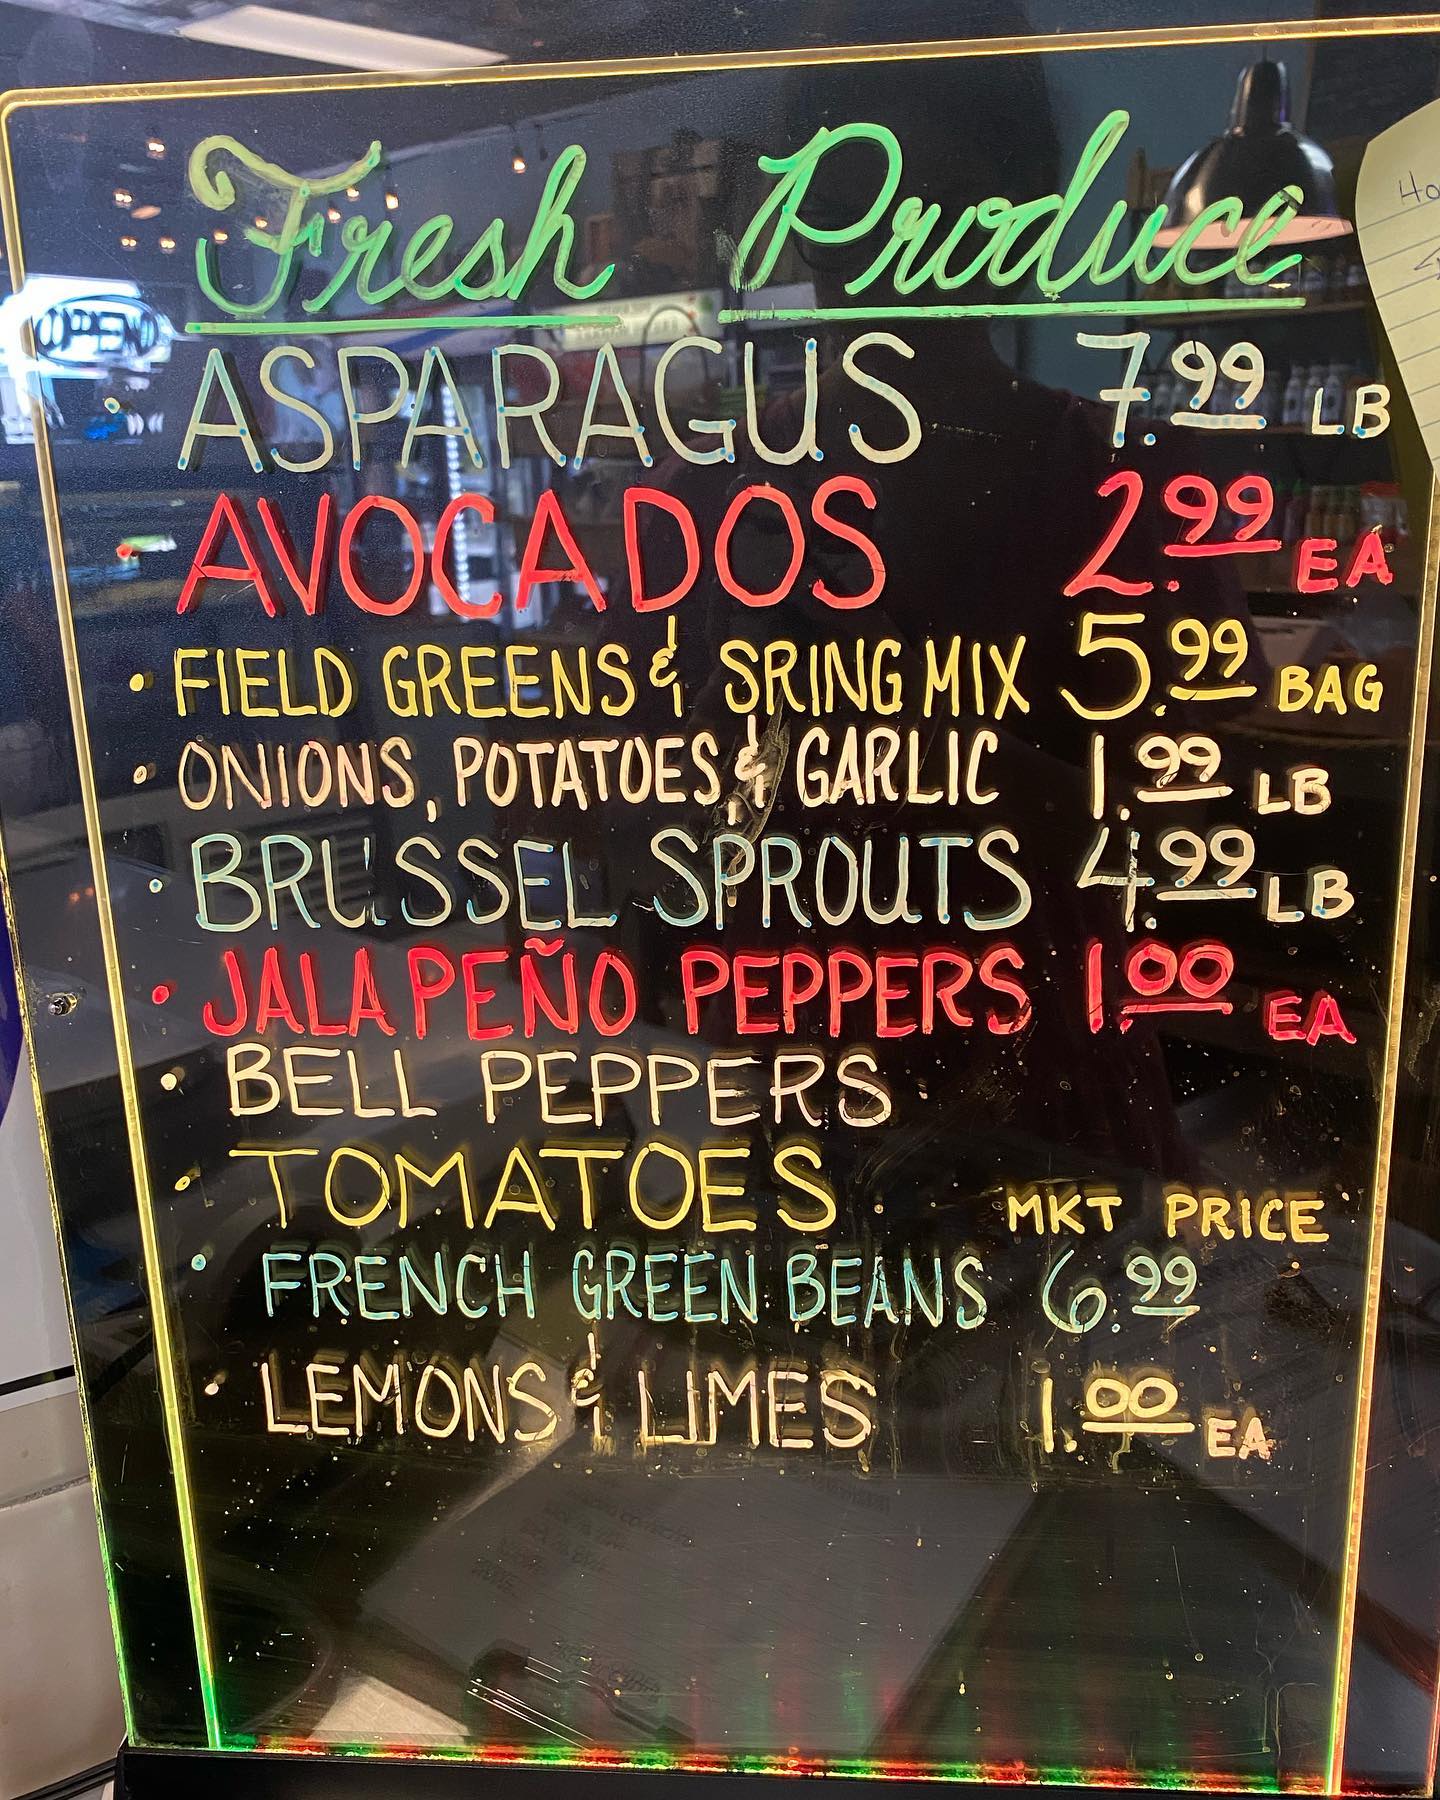 Fresh Produce
• ASPARAGUS 7.99 LB
• AVOCADOS 2.99 EA
• FIELD GREENS & SRING MIX 5.99 BAG
• ONIONS, POTATOES & GARLIC 1.99 LB
• BRUSSEL SPROUTS 4.99 LB
• JALAPEÑO PEPPERS 1.00 EA
• BELL PEPPERS
• TOMATOES MKT PRICE
• FRENCH GREEN BEANS 6.99
• LEMONS & LIMES 1.00 EA
OPEN